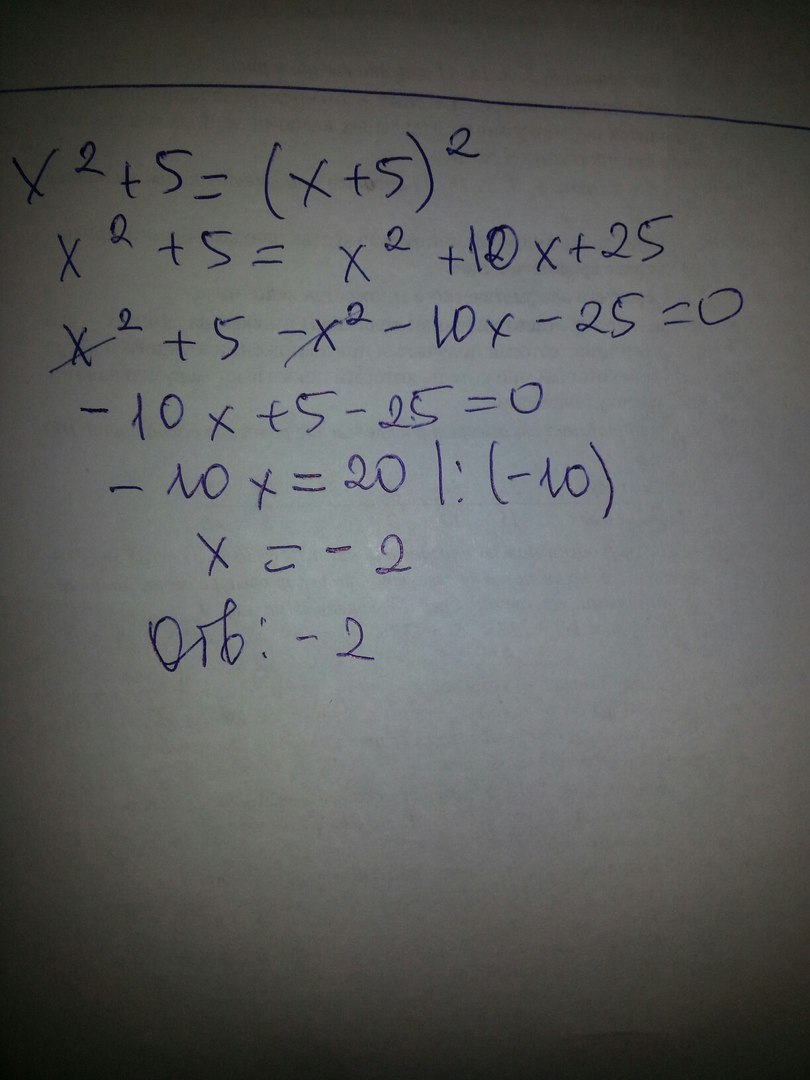 x² + 5 = (x + 5)²
x² + 5 = x² + 10x + 25
x² + 5 - x² - 10x - 25 = 0
- 10x + 5 - 25 = 0
- 10x = 20 |: (-10)
x = - 2
Отв: - 2